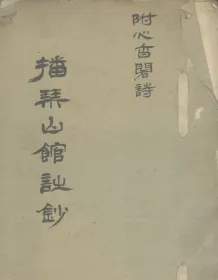 附心香閣詩
播琴山館詩鈔